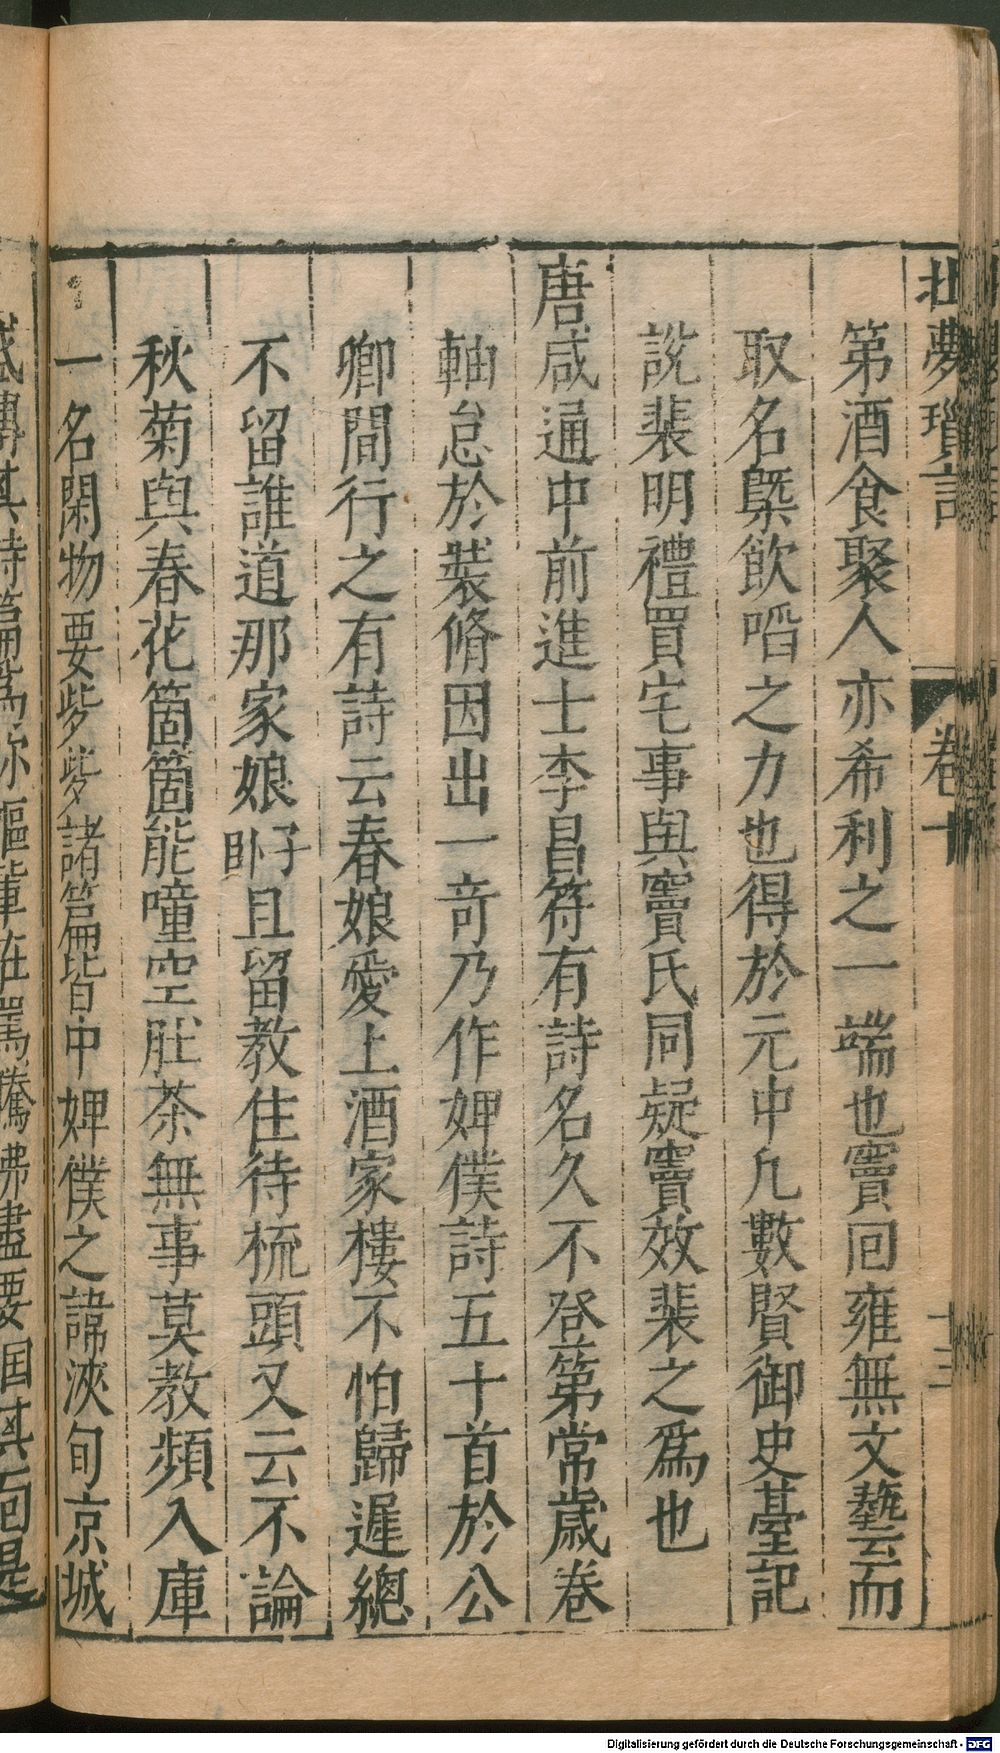 北夢瑣言
卷十
十三
第酒食聚人亦希利之一端也竇回雍無文藝而
取名槩飲啗之力也得於元中凡數賢御史臺記
說裴明禮買宅事與竇氏同疑竇效裴之爲也
唐咸通中前進士李昌符有詩名久不登第常歲卷
軸怠於裝脩因出一奇乃作婢僕詩五十首於公
卿間行之有詩云春娘愛上酒家樓不怕歸遲總
不留誰道那家娘臥子且留教住待梳頭又云不論
秋菊與春花箇箇能噇空肚茶無事莫教頻入庫
一名閑物要㱔㱔諸篇皆中婢僕之諱浹旬京城
Digitalisierung gefördert durch die Deutsche Forschungsgemeinschaft - DFG